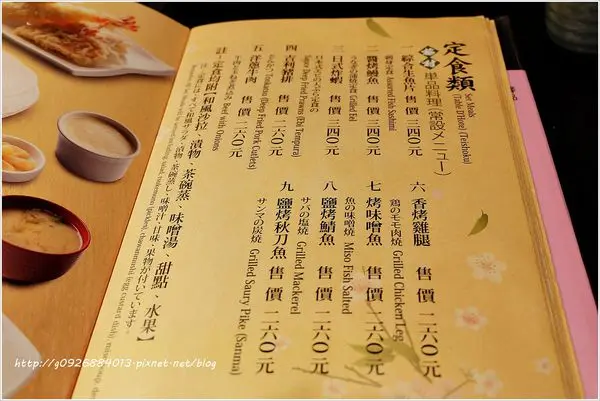 定食類
Set Meals
(Table d'Hote) (Teishoku)
單品料理(常設メニュー)
一 綜合生魚片 售價 三四〇元
刺身定食 Assorted Fish Sashimi
二 醬烤鰻魚 售價 三四〇元
うなぎの蒲焼定食 Grilled Eel
三 日式炸蝦 售價 三四〇元
Japanese Deep Fried Prawns (Ebi Tempura)
四 吉利豬排 售價 二六〇元
とんかつ Tonkatsu (Deep Fried Pork Cutlets)
五 洋蔥牛肉 售價 二六〇元
Beef with Onions
六 香烤雞腿 售價 二六〇元
鶏のモモ肉焼 Grilled Chicken Leg
七 烤味噌魚 售價 二六〇元
魚の味噌焼 Miso Fish Salted
八 鹽烤鯖魚 售價 二六〇元
サバの塩焼 Grilled Mackerel
九 鹽烤秋刀魚 售價 二六〇元
サンマの炭焼 Grilled Saury Pike (Sanma)
註=定食均附【和風沙拉、漬物、茶碗蒸、味噌湯、甜點、水果】
http://g0926884013.pixnet.net/blog